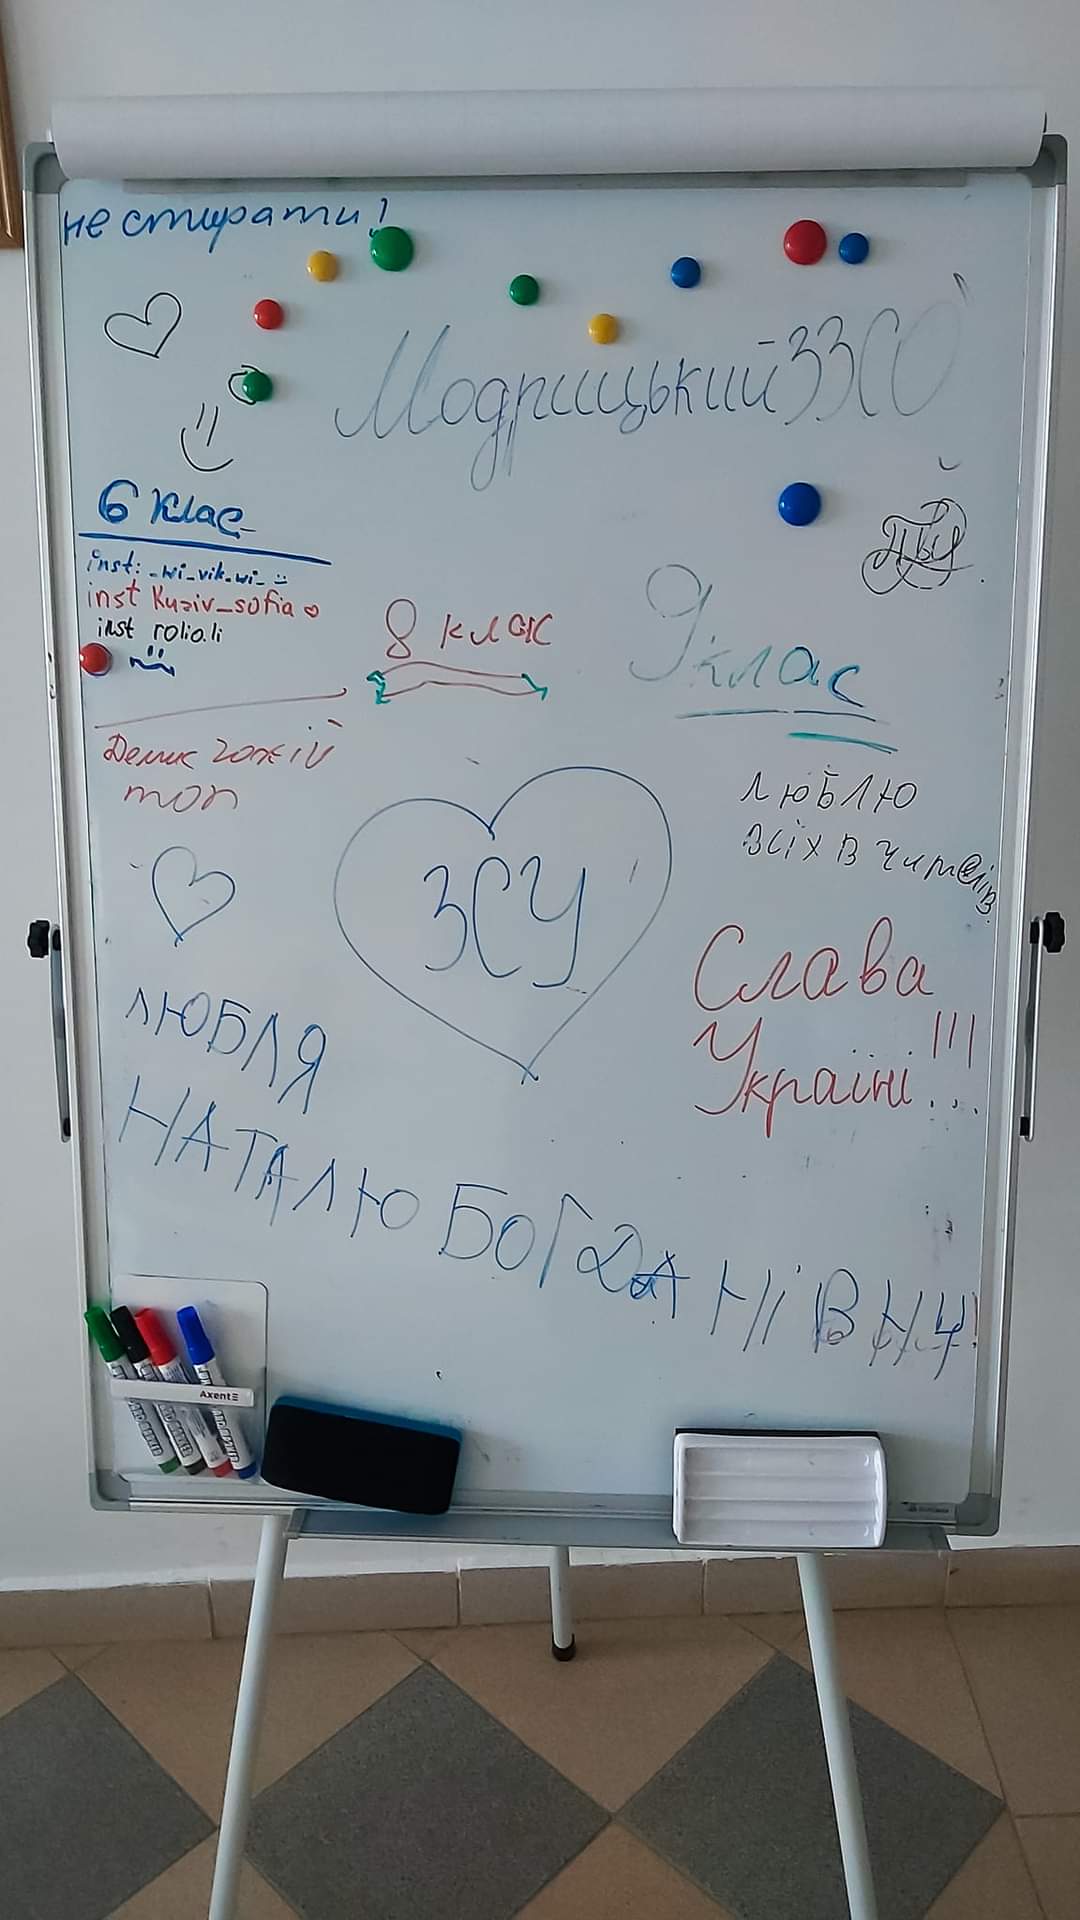 не стирати!
Модрицький ЗЗСО
6 клас
inst: _wi_vik_wi_
inst Kuziv_sofia
inst rolio.li
8 клас
9 клас
топ
люблю
всіх вчителів
ЗСУ
Слава
Україні!!!
ЛЮБЛЯ
НАТАЛЮ БОГДАНІВНУ!
Axent